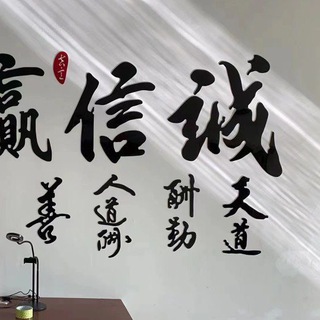 誠信贏
天道
酬勤
人道酬
善